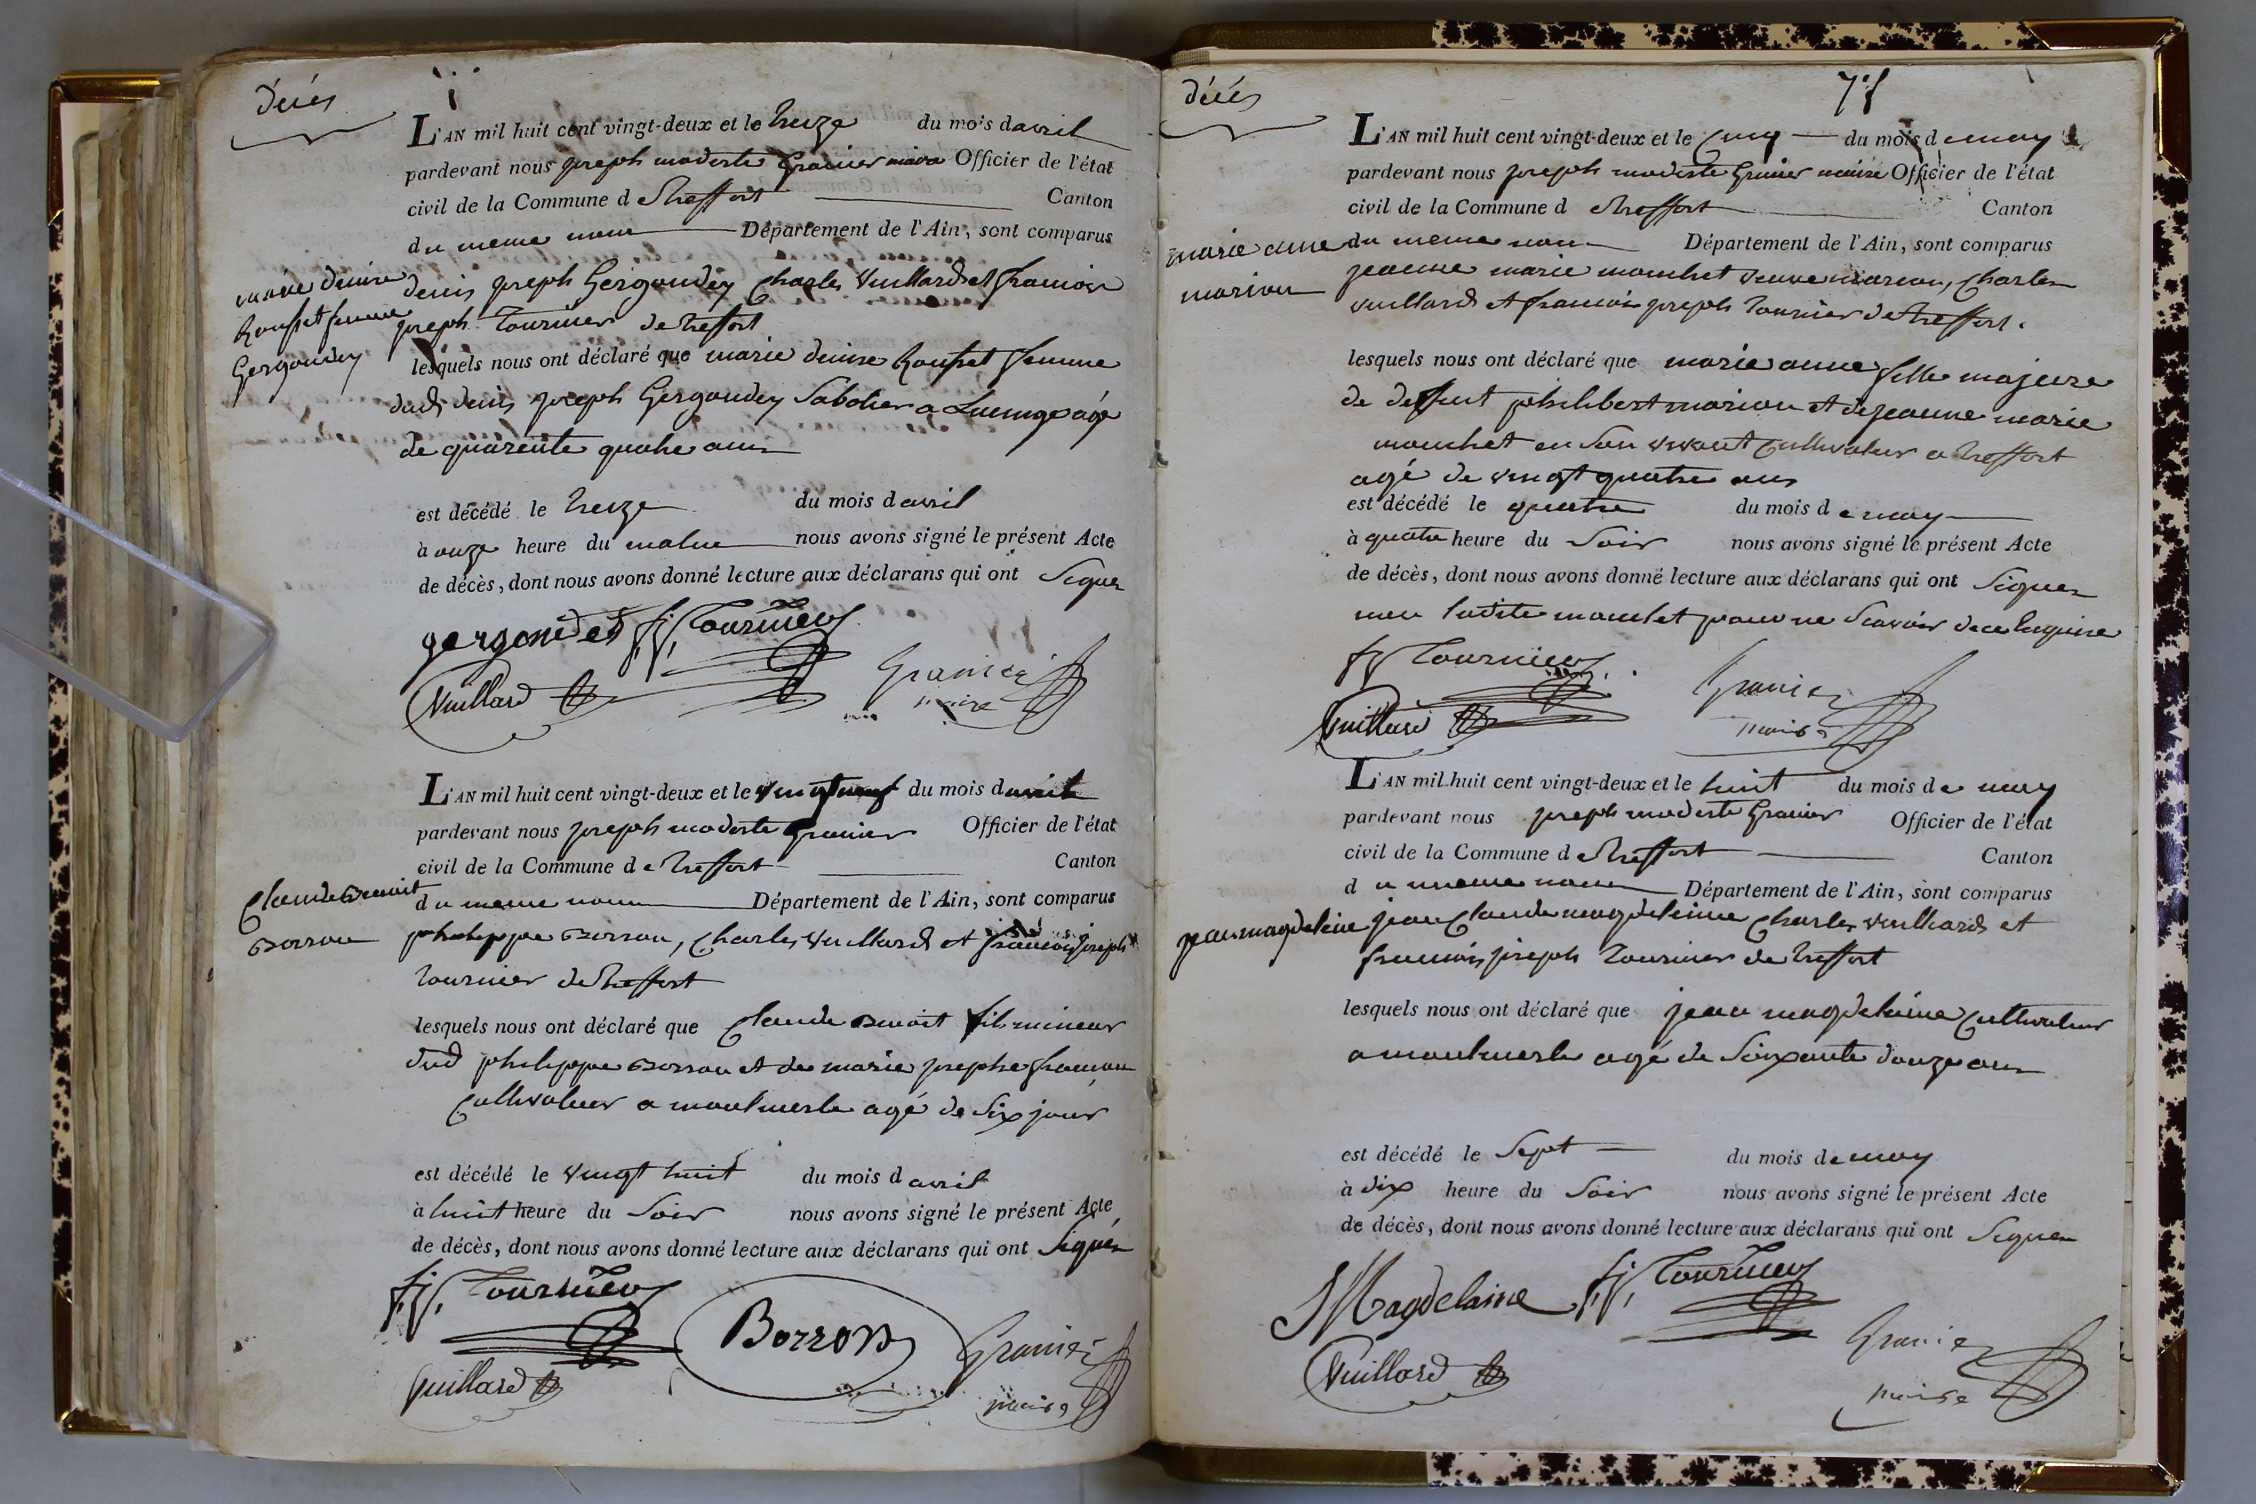 décés
L'AN mil huit cent vingt-deux et le treize du mois d avril
pardevant nous joseph modeste Granier maire Officier de l'état
civil de la Commune d e treffort Canton
du meme nom Département de l'Ain, sont comparus
denis joseph Gergondey Charles Vuillard et francois
joseph tournier de treffort
marie denise
Rousset femme
Gergondey
lesquels nous ont déclaré que marie denise Rousset femme
dud denis joseph Gergondey Sabotier a agé
de quarente quatre ans
est décédé le treize du mois d avril
à onze heure du matin nous avons signé le présent Acte
de décès, dont nous avons donné lecture aux déclarans qui ont Signer
gergondet fj, Tournier
Vuillard Granier
maire
L'AN mil huit cent vingt-deux et le vingt neuf du mois d avril
pardevant nous joseph modeste Granier Officier de l'état
civil de la Commune d e treffort Canton
du meme nom Département de l'Ain, sont comparus
Claude Benoit
Borron
philippe Borron, Charles Vuillard et francois joseph
tournier de treffort
lesquels nous ont déclaré que Claude Benoit fils mineur
dud philippe Borron et de marie josephe
Cultivateur a montmerle agé de Six jour
est décédé le vingt huit du mois d avril
à huit heure du Soir nous avons signé le présent Acte
de décès, dont nous avons donné lecture aux déclarans qui ont Signer
fj, Tournier
Borron Granier
Vuillard maire
décés
L'AN mil huit cent vingt-deux et le cinq du mois d e may
pardevant nous joseph modeste Granier maire Officier de l'état
civil de la Commune d e treffort Canton
du meme nom Département de l'Ain, sont comparus
marie anne
marion
jeanne marie monchet veuve marion, Charles
vuillard et francois joseph tournier de treffort.
lesquels nous ont déclaré que marie anne fille majeure
de deffunt philibert marion et de jeanne marie
monchet en Son vivant Cultivateur a treffort
agé de vingt quatre ans
est décédé le quatre du mois d e may
à quatre heure du Soir nous avons signé le présent Acte
de décès, dont nous avons donné lecture aux déclarans qui ont Signer
non ladite monchet pour ne Scavoir de ce Enquise
fj Tournier
Vuillard Granier
maire
L'AN mil huit cent vingt-deux et le huit du mois d e may
pardevant nous joseph modeste Granier Officier de l'état
civil de la Commune d e treffort Canton
d u meme nom Département de l'Ain, sont comparus
jean magdelaine
jean Claude magdelaine Charles Vuillard et
francois joseph tournier de treffort
lesquels nous ont déclaré que jean magdelaine Cultivateur
a montmerle agé de Soixante douze ans
est décédé le Sept du mois d e may
à dix heure du Soir nous avons signé le présent Acte
de décès, dont nous avons donné lecture aux déclarans qui ont Signer
Magdelaine fj, Tournier
Vuillard Granier
maire